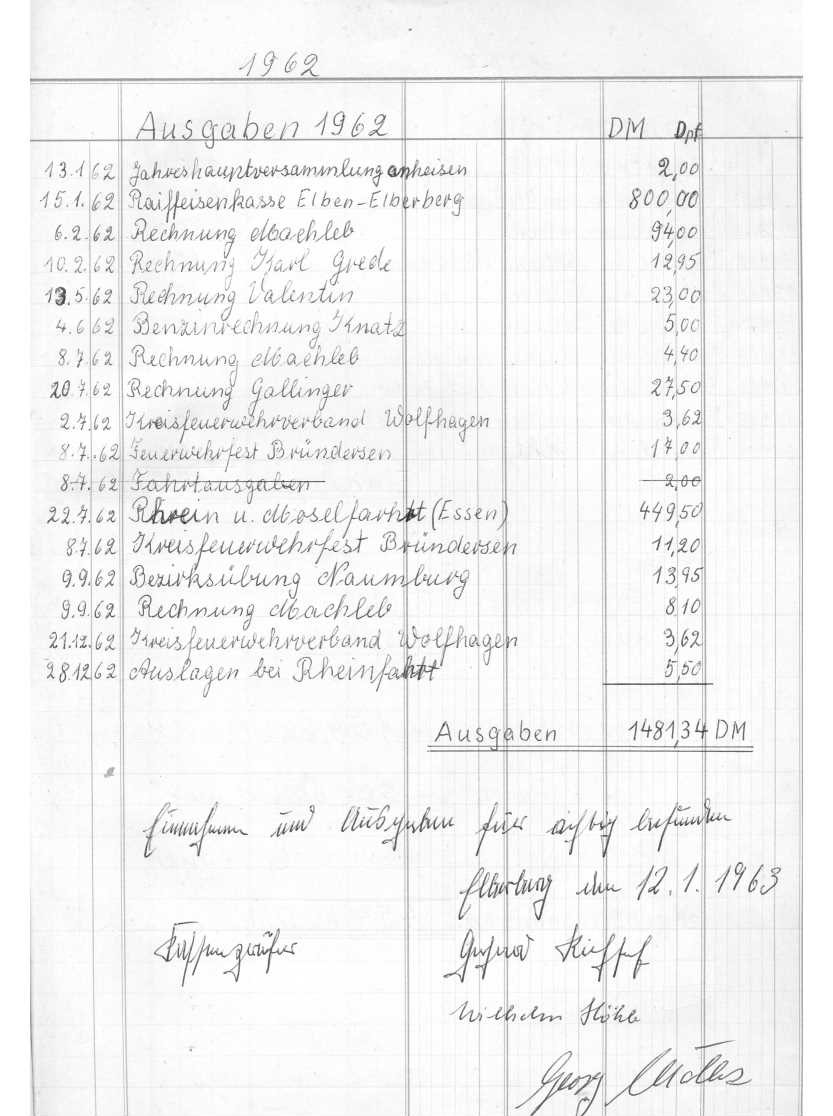 1962
Ausgaben 1962 DM Dpf
13.1.62 Jahreshauptversammlung anheisen 2,00
15.1.62 Raiffeisenkasse Elben-Elberberg 800,00
6.2.62 Rechnung Machleb 94,00
10.2.62 Rechnung Karl Grede 12,95
13.5.62 Rechnung Valentin 23,00
4.6.62 Benzinrechnung Knatz 5,00
8.7.62 Rechnung Machleb 4,40
20.7.62 Rechnung Gallinger 27,50
2.7.62 Kreisfeuerwehrverband Wolfhagen 3,62
8.7.62 Feuerwehrfest Bründersen 17,00
8.7.62 Fahrtausgaben 2,00
22.7.62 Rhein u. Moselfarhtt (Essen) 449,50
8.7.62 Kreisfeuerwehrfest Bründersen 11,20
9.9.62 Bezirksübung Naumburg 13,95
9.9.62 Rechnung Machleb 8,10
21.12.62 Kreisfeuerwehrverband Wolfhagen 3,62
28.12.62 Auslagen bei Rheinfahtt 5,50
Ausgaben 1481,34 DM
Einnahmen und Ausgaben für richtig befunden
Elberberg den 12.1.1963
Kassenprüfer Gerhard
Wilhelm Höhle
Georg